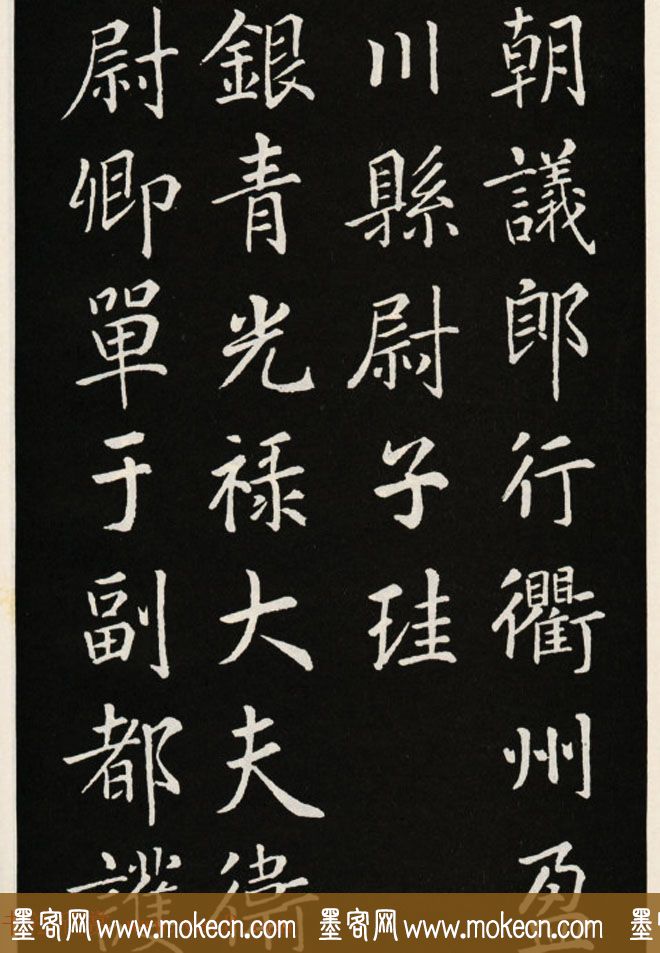 朝議郎行衢州盈
川縣尉子珪
銀青光禄大夫衛
尉卿單于副都護
墨客网 www.mokecn.com 墨客网 www.mokecn.com 墨客网